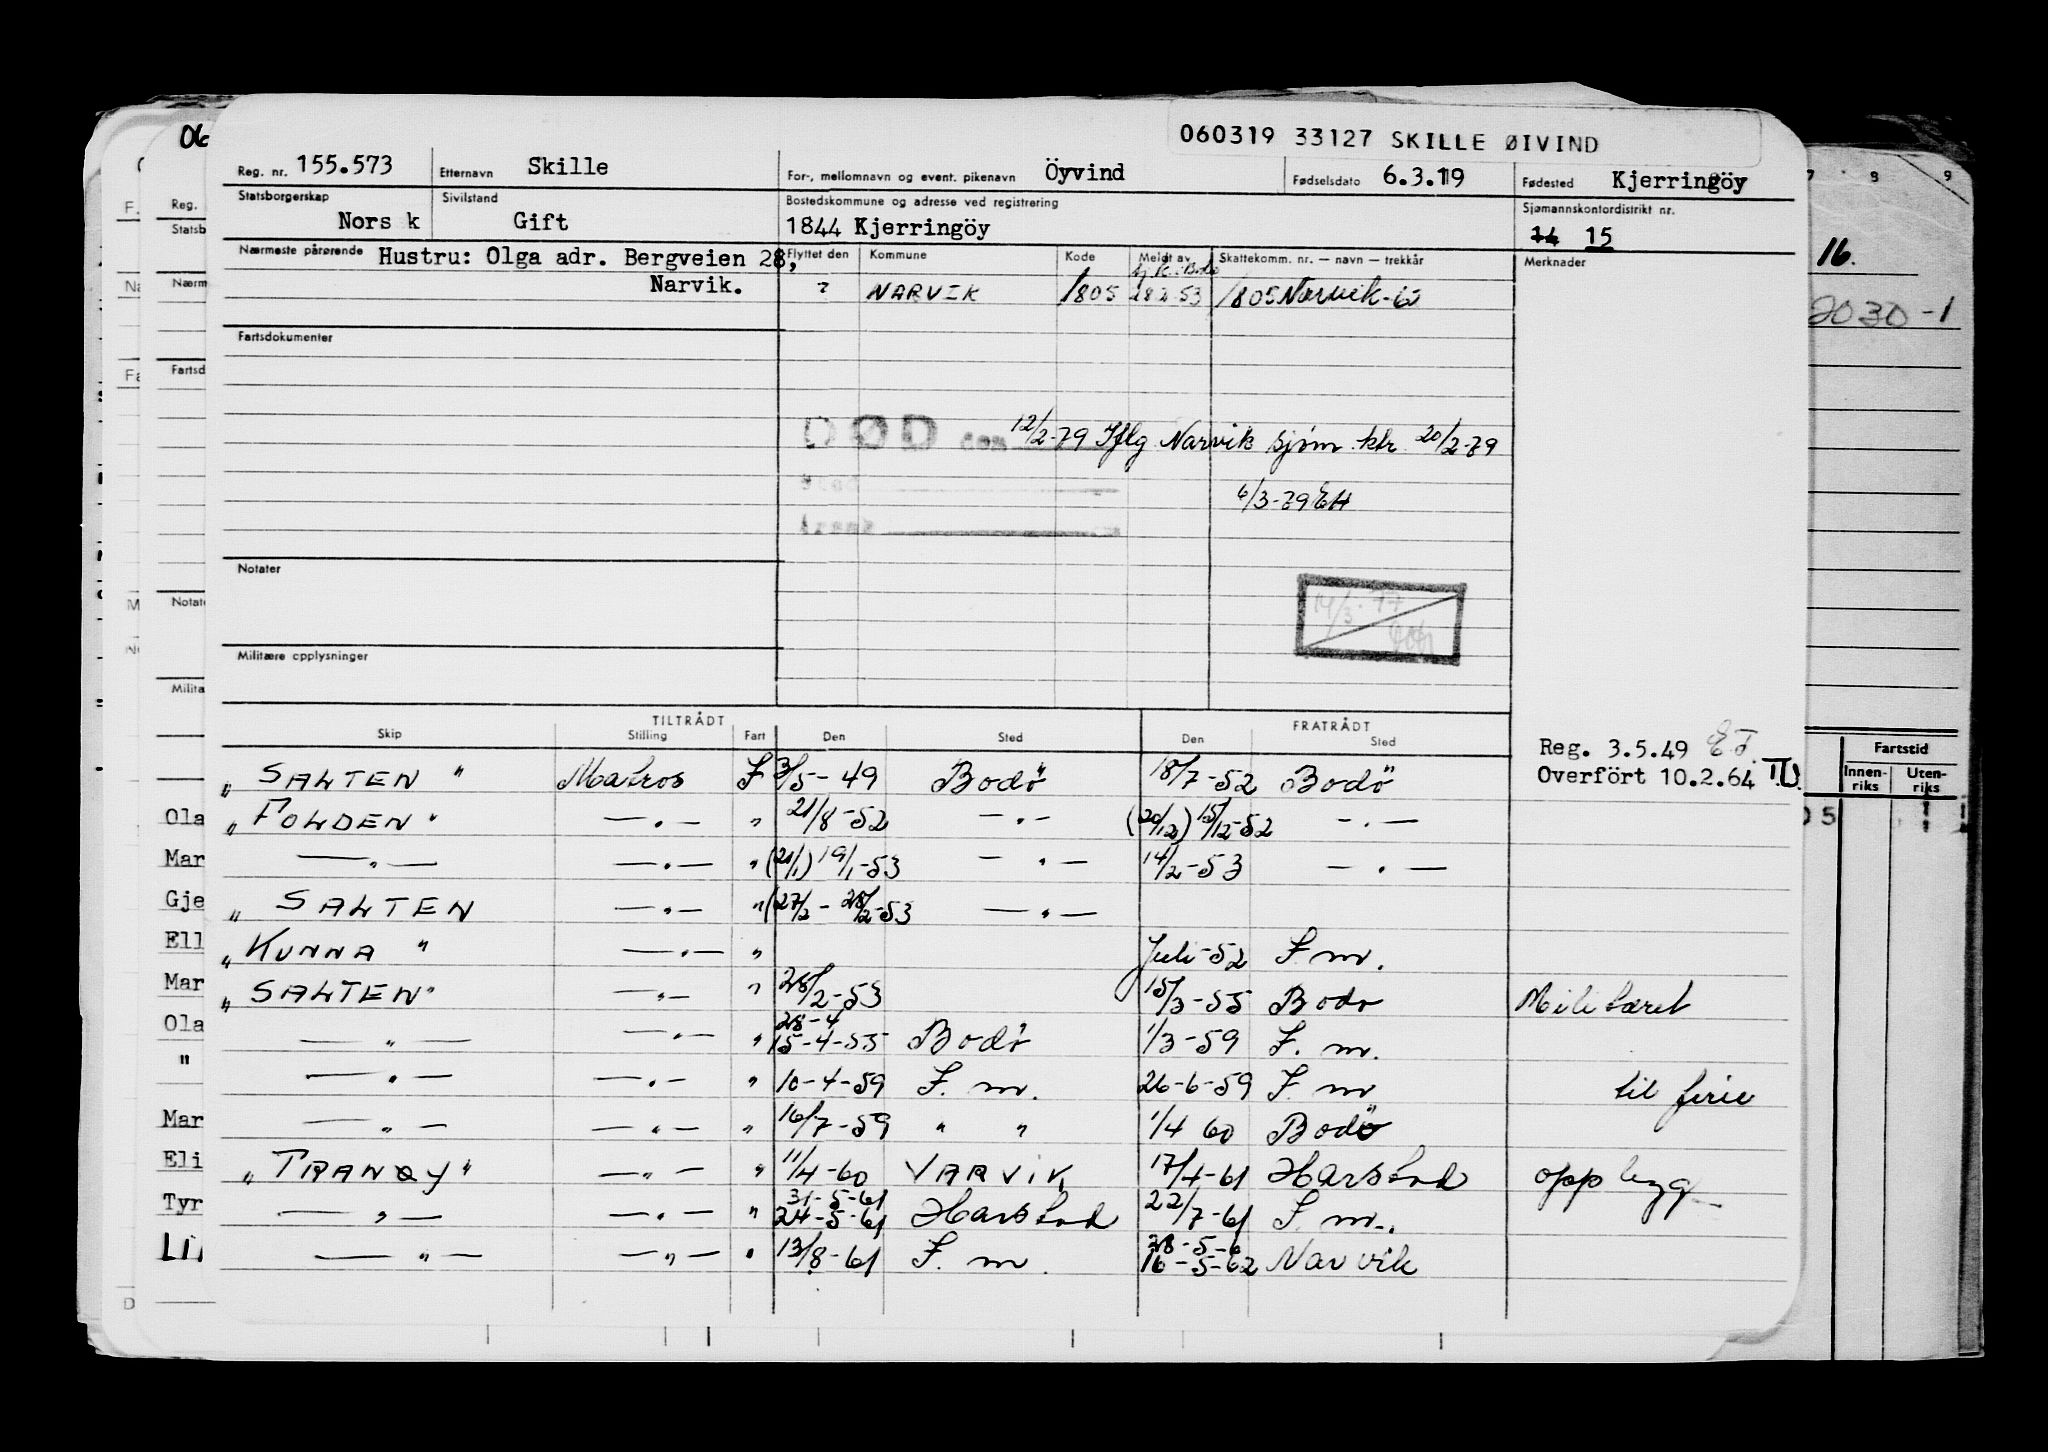 060319 33127 SKILLE ØIVIND
Reg. nr. 155.573 Etternavn Skille For-, mellomnavn og event. pikenavn Öyvind Fødselsdato 6.3.19 Fødested Kjerringöy
Statsborgerskap Norsk Sivilstand Gift Bostedskommune og adresse ved registrering 1844 Kjerringöy Sjømannskontordistrikt nr. 14 15
Nærmeste pårørende Hustru: Olga adr. Bergveien 28, Flyttet den Kommune Kode Meldt av Skattekomm. nr. — navn — trekkår Merknader
Narvik. ? NARVIK 1805 28 2-53 1805 Narvik
Fartsdokumenter
DØD den 12/2-79 Iflg Narvik sjøm. ktr. 20/2-79
Sted
6/3-79 EH
Årsak
Notater
14/3-77
Militære opplysninger
TILTRÅDT FRATRÅDT
Skip Stilling Fart Den Sted Den Sted
Reg. 3.5.49
Overfört 10.2.64
"SALTEN" Matros F 3/5-49 Bodö 18/7-52 Bodö
"FOLDEN" —"— " 21/8-52 —"— (20/12) 15/12-52 —"—
—"— —"— " (21/1) 19/1-53 —"— 14/2-53 —"—
"SALTEN —"— " (27/2 - 28/2-53 —"—
"KUNNA" —"— " Juli-52 F.m.
"SALTEN" —"— " 28/2-53 15/3-55 Bodø Militæret
—"— —"— " 28-4 15-4-55 Bodö 1/3-59 F.m.
—"— —"— " 10-4-59 F.m. 26-6-59 F.m til ferie
—"— —"— " 16/7-59 " " 1/4 60 Bodö
"TRANØY" —"— " 11/4-60 NARVIK 17/4-61 Harstad opplegg
—"— —"— " 31-5-61 24-5-61 Harstad 22/7-61 F.m.
—"— —"— " 13/8-61 F.m. 28-5-6 16-5-62 Narvik
Fartstid
Innen-riks Uten-riks
7 8 9
16.
2030-1
Ola
Mar
Gje
Ell
Mar
Ola
"
Mar
Eli
Tyr